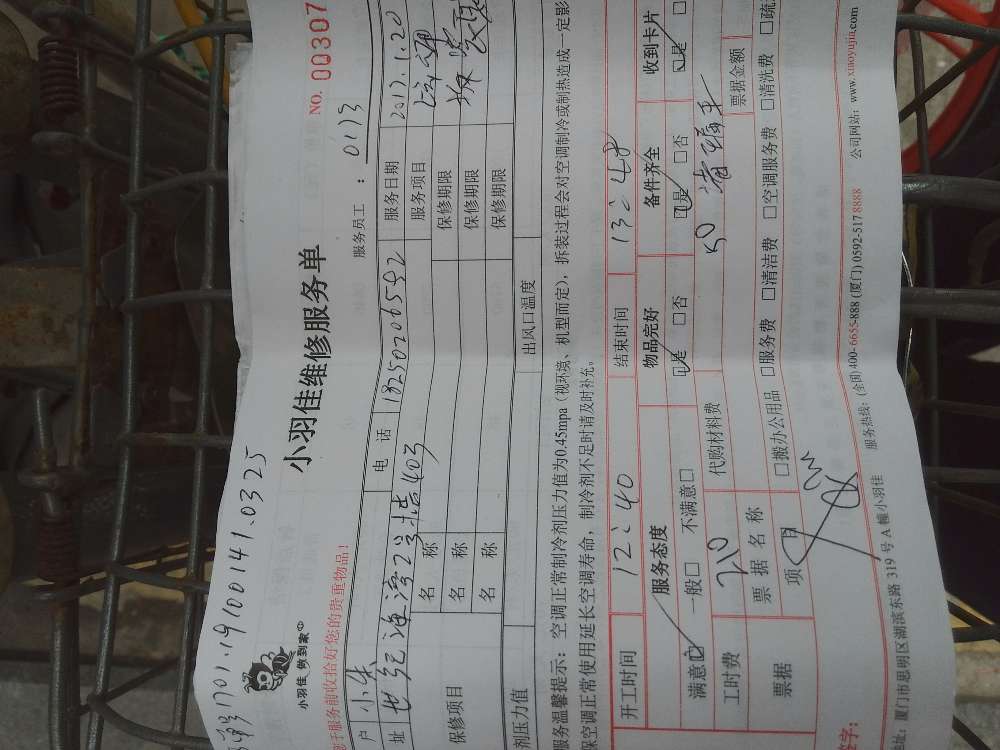 1701.19100141.0325
小羽佳 做到家
小羽佳维修服务单
NO. 00307
服务前收拾好您的贵重物品！
服务员工： 0173
户 小朱 电 话 18250206592 服务日期 2017.1.20
址 世纪海湾2号楼403 服务项目
保修项目
名 称 保修期限
名 称 保修期限
名 称 保修期限
剂压力值 出风口温度
服务温馨提示：空调正常制冷剂压力值为0.45mpa（视环境、机型而定），拆装过程会对空调制冷或制热造成一定影
保空调正常使用延长空调寿命，制冷剂不足时请及时补充。
开工时间 12:40 结束时间 13:48
服务态度 物品完好 备件齐全 收到卡片
满意☑ 一般□ 不满意□ ☑是 □否 ☑是 □否 ☑是
工时费 210 代购材料费 50
票据 票据名称 票据金额
项目 □搬办公用品 □服务费 □清洁费 □空调服务费 □清洗费 □疏
签字：
址：厦门市思明区湖滨东路 319 号 A 幢小羽佳 服务热线：(全国) 400-6655-888 (厦门) 0592-517 8888 公司网站：www.xiaoyujia.com